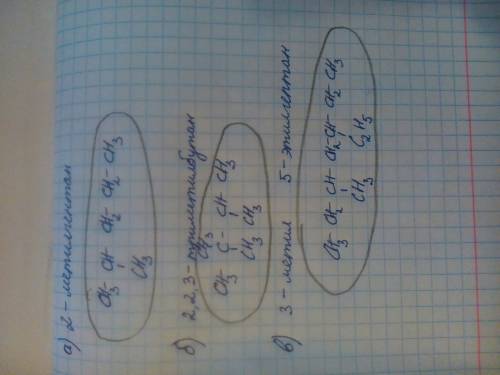 а) 2 - метилгептан
CH3 CH CH2 CH2 CH3
CH3
б) 2,2,3 - триметилбутан
CH3
CH3 - C - CH CH3
CH3 CH3
в) 3 - метил 5 - этилгептан
CH3 CH2 CH CH2 CH CH2 CH3
CH3 C2H5